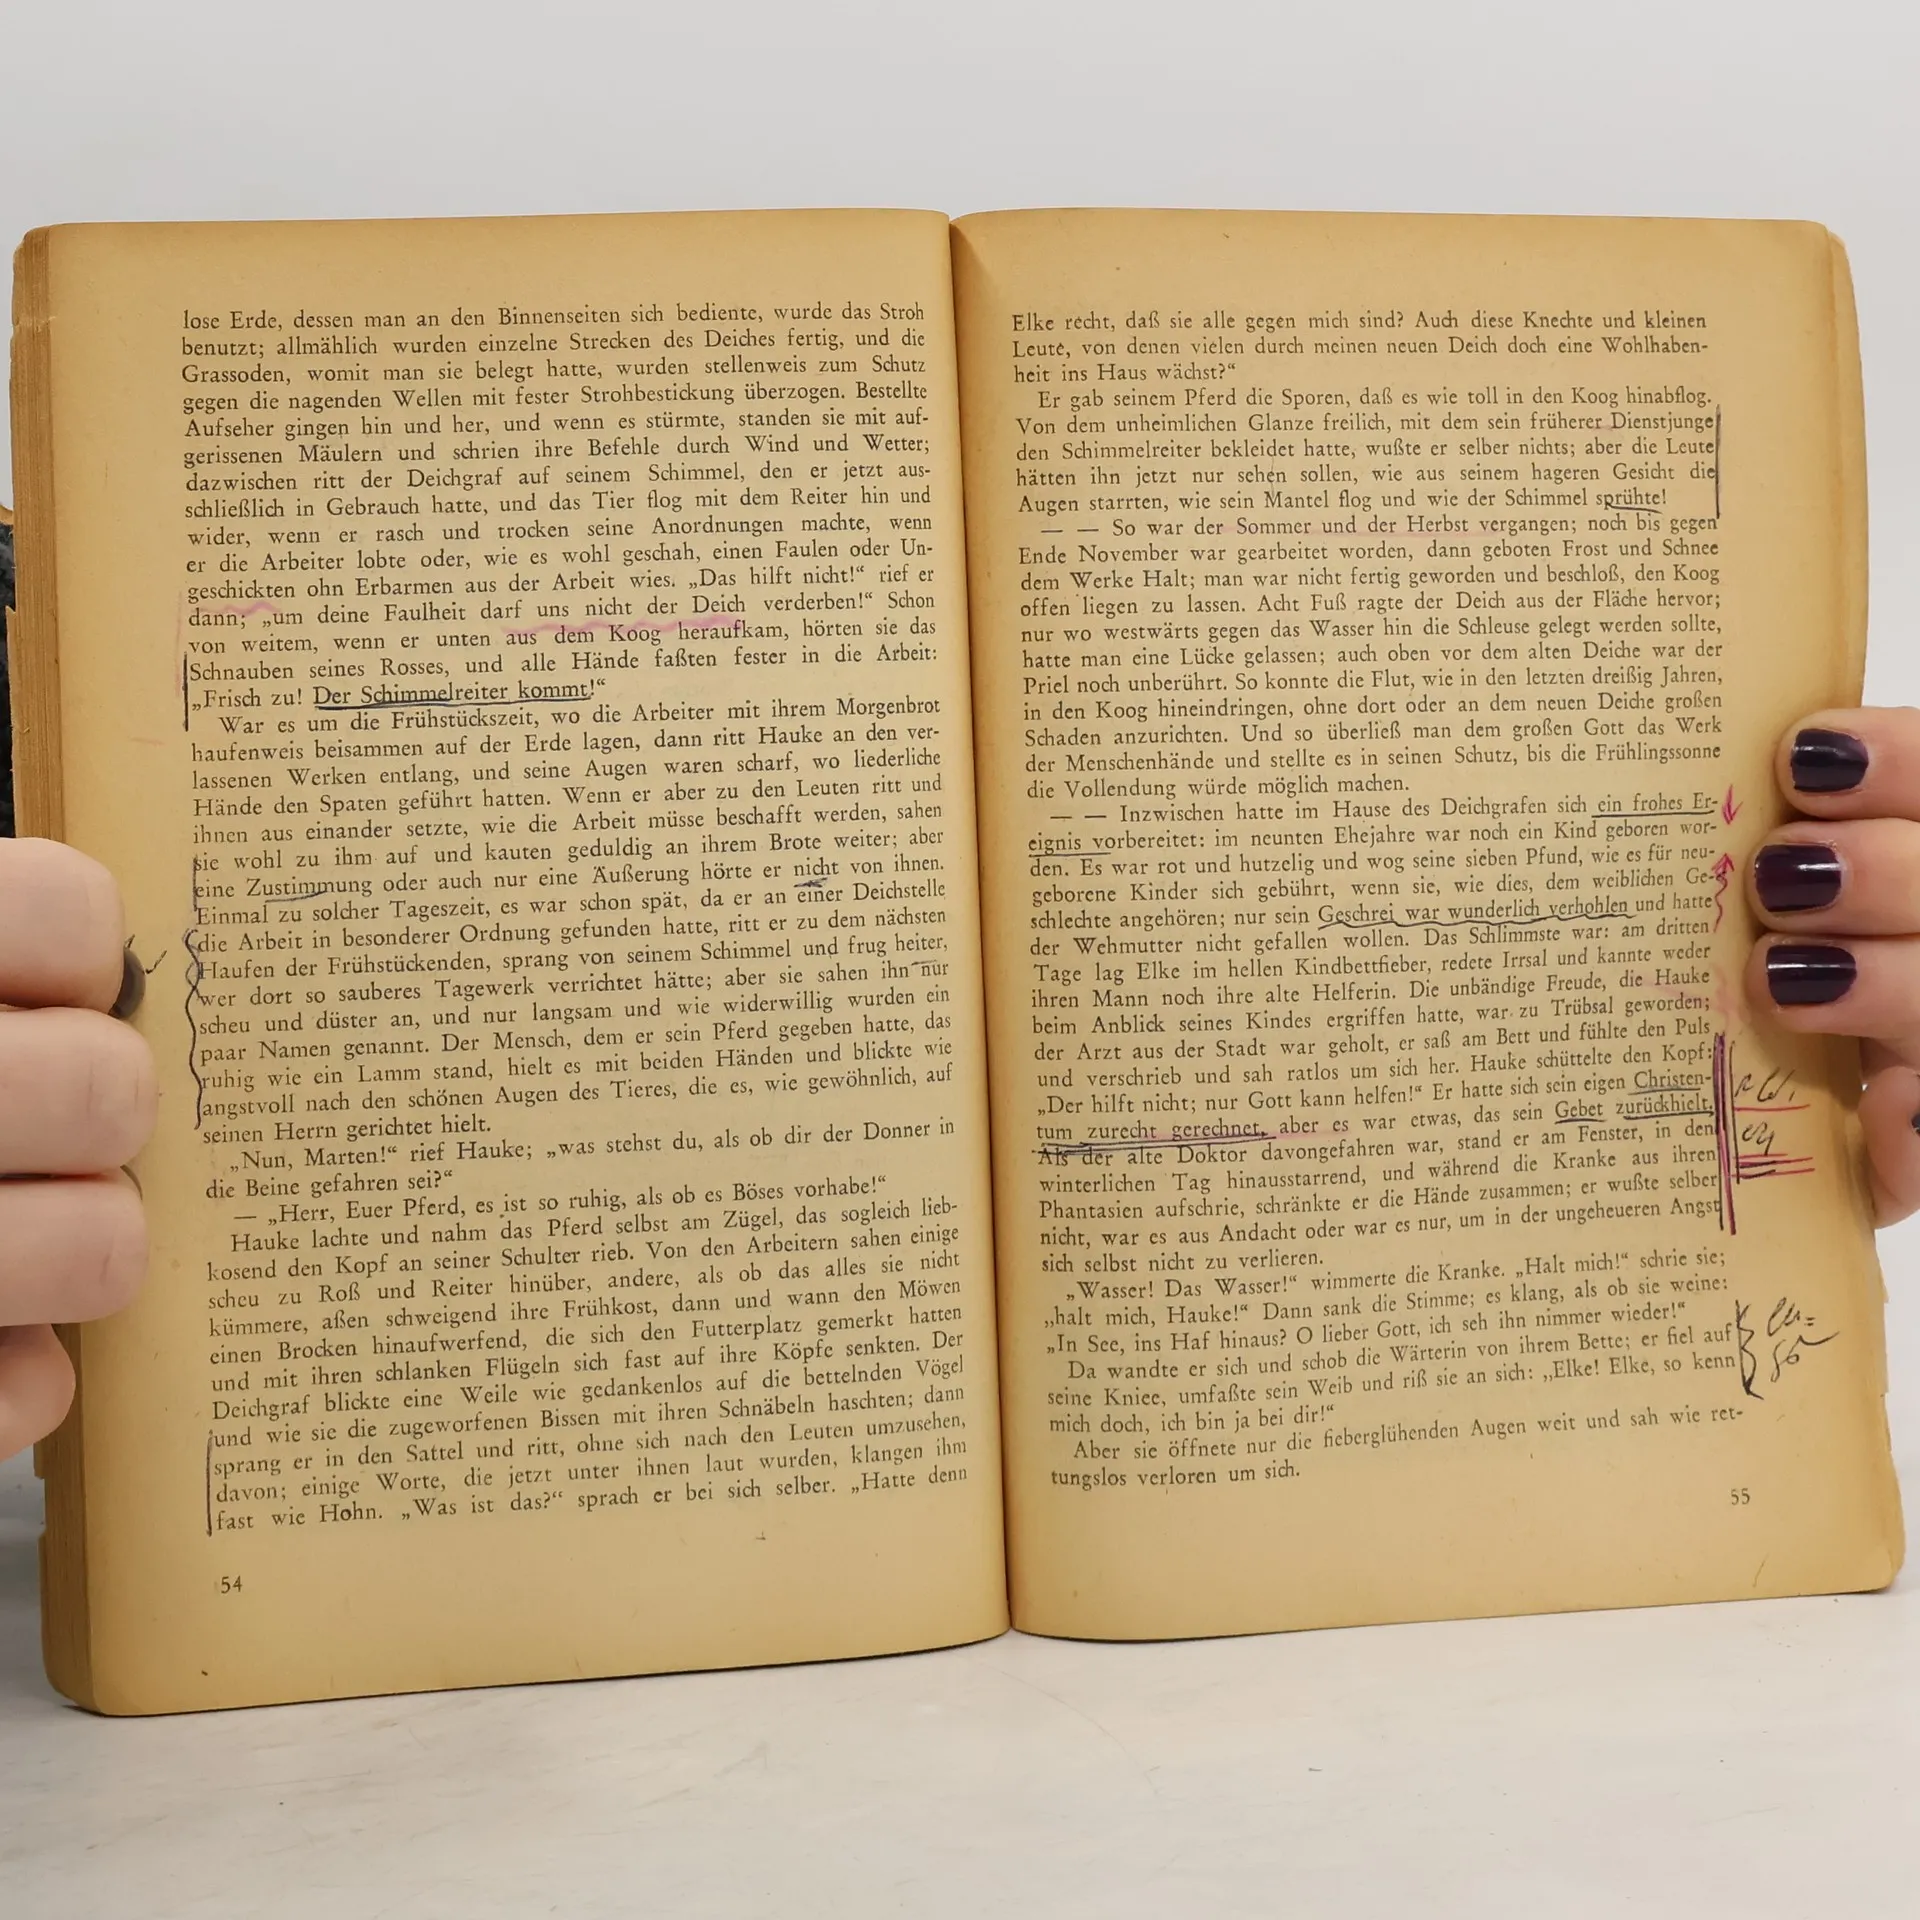 lose Erde, dessen man an den Binnenseiten sich bediente, wurde das Stroh
benutzt; allmählich wurden einzelne Strecken des Deiches fertig, und die
Grassoden, womit man sie belegt hatte, wurden stellenweis zum Schutz
gegen die nagenden Wellen mit fester Strohbestickung überzogen. Bestellte
Aufseher gingen hin und her, und wenn es stürmte, standen sie mit auf-
gerissenen Mäulern und schrien ihre Befehle durch Wind und Wetter;
dazwischen ritt der Deichgraf auf seinem Schimmel, den er jetzt aus-
schließlich in Gebrauch hatte, und das Tier flog mit dem Reiter hin und
wider, wenn er rasch und trocken seine Anordnungen machte, wenn
er die Arbeiter lobte oder, wie es wohl geschah, einen Faulen oder Un-
geschickten ohn Erbarmen aus der Arbeit wies. „Das hilft nicht!“ rief er
dann; „um deine Faulheit darf uns nicht der Deich verderben!“ Schon
von weitem, wenn er unten aus dem Koog heraufkam, hörten sie das
Schnauben seines Rosses, und alle Hände faßten fester in die Arbeit:
„Frisch zu! Der Schimmelreiter kommt!“
War es um die Frühstückszeit, wo die Arbeiter mit ihrem Morgenbrot
haufenweis beisammen auf der Erde lagen, dann ritt Hauke an den ver-
lassenen Werken entlang, und seine Augen waren scharf, wo liederliche
Hände den Spaten geführt hatten. Wenn er aber zu den Leuten ritt und
ihnen aus einander setzte, wie die Arbeit müsse beschafft werden, sahen
sie wohl zu ihm auf und kauten geduldig an ihrem Brote weiter; aber
eine Zustimmung oder auch nur eine Äußerung hörte er nicht von ihnen.
Einmal zu solcher Tageszeit, es war schon spät, da er an einer Deichstelle
die Arbeit in besonderer Ordnung gefunden hatte, ritt er zu dem nächsten
Haufen der Frühstückenden, sprang von seinem Schimmel und frug heiter,
wer dort so sauberes Tagewerk verrichtet hätte; aber sie sahen ihn nur
scheu und düster an, und nur langsam und wie widerwillig wurden ein
paar Namen genannt. Der Mensch, dem er sein Pferd gegeben hatte, das
ruhig wie ein Lamm stand, hielt es mit beiden Händen und blickte wie
angstvoll nach den schönen Augen des Tieres, die es, wie gewöhnlich, auf
seinen Herrn gerichtet hielt.
„Nun, Marten!“ rief Hauke; „was stehst du, als ob dir der Donner in
die Beine gefahren sei?“
— „Herr, Euer Pferd, es ist so ruhig, als ob es Böses vorhabe!“
Hauke lachte und nahm das Pferd selbst am Zügel, das sogleich lieb-
kosend den Kopf an seiner Schulter rieb. Von den Arbeitern sahen einige
scheu zu Roß und Reiter hinüber, andere, als ob das alles sie nicht
kümmere, aßen schweigend ihre Frühkost, dann und wann den Möwen
einen Brocken hinaufwerfend, die sich den Futterplatz gemerkt hatten
und mit ihren schlanken Flügeln sich fast auf ihre Köpfe senkten. Der
Deichgraf blickte eine Weile wie gedankenlos auf die bettelnden Vögel
und wie sie die zugeworfenen Bissen mit ihren Schnäbeln haschten; dann
sprang er in den Sattel und ritt, ohne sich nach den Leuten umzusehen,
davon; einige Worte, die jetzt unter ihnen laut wurden, klangen ihm
fast wie Hohn. „Was ist das?“ sprach er bei sich selber. „Hatte denn
54
Elke recht, daß sie alle gegen mich sind? Auch diese Knechte und kleinen
Leute, von denen vielen durch meinen neuen Deich doch eine Wohlhaben-
heit ins Haus wächst?“
Er gab seinem Pferd die Sporen, daß es wie toll in den Koog hinabflog.
Von dem unheimlichen Glanze freilich, mit dem sein früherer Dienstjunge
den Schimmelreiter bekleidet hatte, wußte er selber nichts; aber die Leute
hätten ihn jetzt nur sehen sollen, wie aus seinem hageren Gesicht die
Augen starrten, wie sein Mantel flog und wie der Schimmel sprühte!
— — So war der Sommer und der Herbst vergangen; noch bis gegen
Ende November war gearbeitet worden, dann geboten Frost und Schnee
dem Werke Halt; man war nicht fertig geworden und beschloß, den Koog
offen liegen zu lassen. Acht Fuß ragte der Deich aus der Fläche hervor;
nur wo westwärts gegen das Wasser hin die Schleuse gelegt werden sollte,
hatte man eine Lücke gelassen; auch oben vor dem alten Deiche war der
Priel noch unberührt. So konnte die Flut, wie in den letzten dreißig Jahren,
in den Koog hineindringen, ohne dort oder an dem neuen Deiche großen
Schaden anzurichten. Und so überließ man dem großen Gott das Werk
der Menschenhände und stellte es in seinen Schutz, bis die Frühlingssonne
die Vollendung würde möglich machen.
— — Inzwischen hatte im Hause des Deichgrafen sich ein frohes Er-
eignis vorbereitet: im neunten Ehejahre war noch ein Kind geboren wor-
den. Es war rot und hutzelig und wog seine sieben Pfund, wie es für neu-
geborene Kinder sich gebührt, wenn sie, wie dies, dem weiblichen Ge-
schlechte angehören; nur sein Geschrei war wunderlich verhohlen und hatte
der Wehmutter nicht gefallen wollen. Das Schlimmste war: am dritten
Tage lag Elke im hellen Kindbettfieber, redete Irrsal und kannte weder
ihren Mann noch ihre alte Helferin. Die unbändige Freude, die Hauke
beim Anblick seines Kindes ergriffen hatte, war zu Trübsal geworden;
der Arzt aus der Stadt war geholt, er saß am Bett und fühlte den Puls
und verschrieb und sah ratlos um sich her. Hauke schüttelte den Kopf:
„Der hilft nicht; nur Gott kann helfen!“ Er hatte sich sein eigen Christen-
tum zurecht gerechnet, aber es war etwas, das sein Gebet zurückhielt.
Als der alte Doktor davongefahren war, stand er am Fenster, in den
winterlichen Tag hinausstarrend, und während die Kranke aus ihren
Phantasien aufschrie, schränkte er die Hände zusammen; er wußte selber
nicht, war es aus Andacht oder war es nur, um in der ungeheueren Angst
sich selbst nicht zu verlieren.
„Wasser! Das Wasser!“ wimmerte die Kranke. „Halt mich!“ schrie sie;
„halt mich, Hauke!“ Dann sank die Stimme; es klang, als ob sie weine:
„In See, ins Haf hinaus? O lieber Gott, ich seh ihn nimmer wieder!“
Da wandte er sich und schob die Wärterin von ihrem Bette; er fiel auf
seine Kniee, umfaßte sein Weib und riß sie an sich: „Elke! Elke, so kenn
mich doch, ich bin ja bei dir!“
Aber sie öffnete nur die fieberglühenden Augen weit und sah wie ret-
tungslos verloren um sich.
55